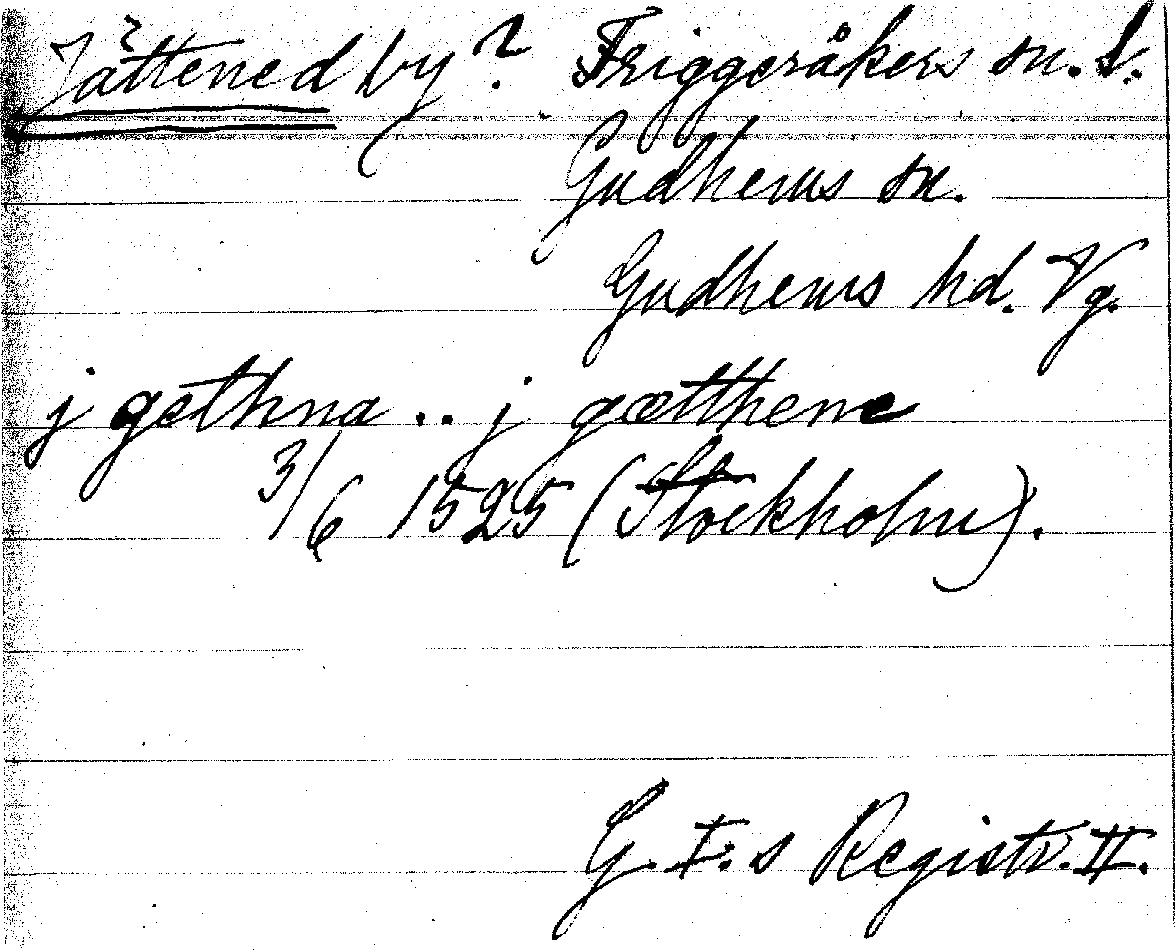 Jättened by? Friggeråkers sn. l.
Gudhems sn.
Gudhems hd. Vg.
j gethna .. j gætthene
3/6 1525 (Stockholm).
G. I:s Registr. II.